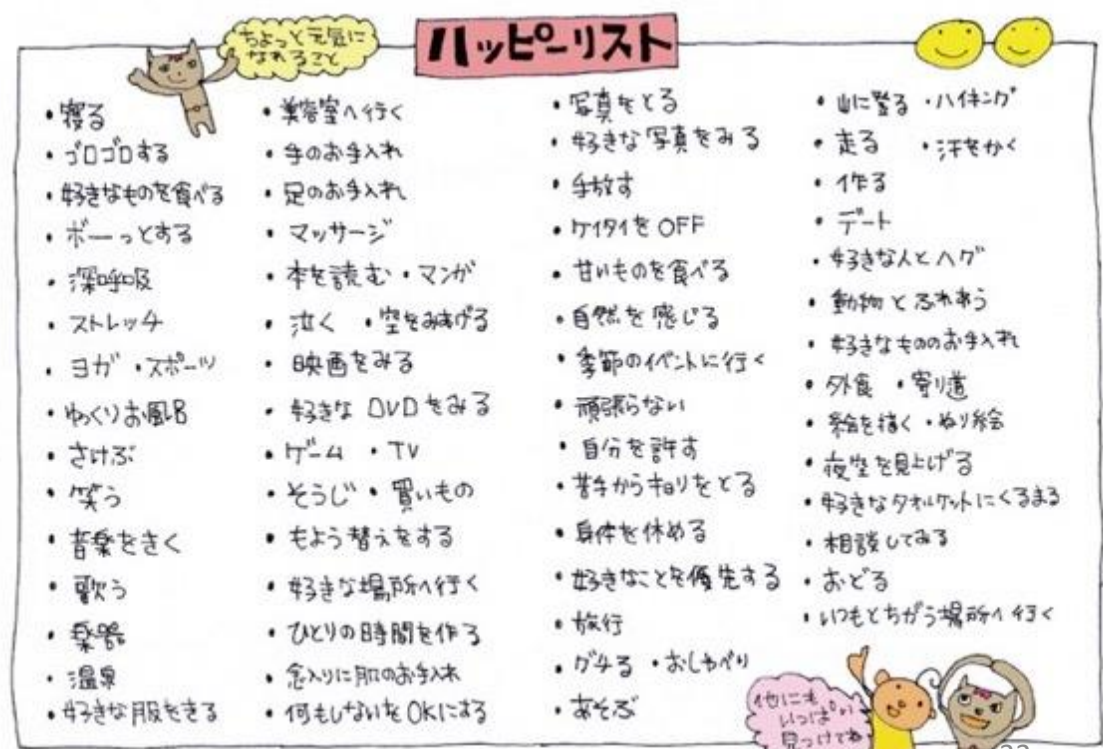 ちょっと元気に
なれること
ハッピーリスト
・寝る
・ゴロゴロする
・好きなものを食べる
・ボーっとする
・深呼吸
・ストレッチ
・ヨガ ・スポーツ
・ゆっくりお風呂
・さけぶ
・笑う
・音楽をきく
・歌う
・楽器
・温泉
・好きな服をきる
・美容室へ行く
・手のお手入れ
・足のお手入れ
・マッサージ
・本を読む ・マンガ
・泣く ・空をみあげる
・映画をみる
・好きな DVD をみる
・ゲーム ・TV
・そうじ ・買いもの
・もよう替えをする
・好きな場所へ行く
・ひとりの時間を作る
・念入りに肌のお手入れ
・何もしないをOKにする
・写真をとる
・好きな写真をみる
・手放す
・ケイタイを OFF
・甘いものを食べる
・自然を感じる
・季節のイベントに行く
・頑張らない
・自分を許す
・苦手から距りをとる
・身体を休める
・好きなことを優先する
・旅行
・グチる ・おしゃべり
・あそぶ
・山に登る ・ハイキング
・走る ・汗をかく
・作る
・デート
・好きな人とハグ
・動物とふれあう
・好きなもののお手入れ
・外食 ・寄り道
・絵を描く ・ぬり絵
・夜空を見上げる
・好きなタオルケットにくるまる
・相談してみる
・おどる
・いつもとちがう場所へ行く
他にも
いっぱい
見つけてね